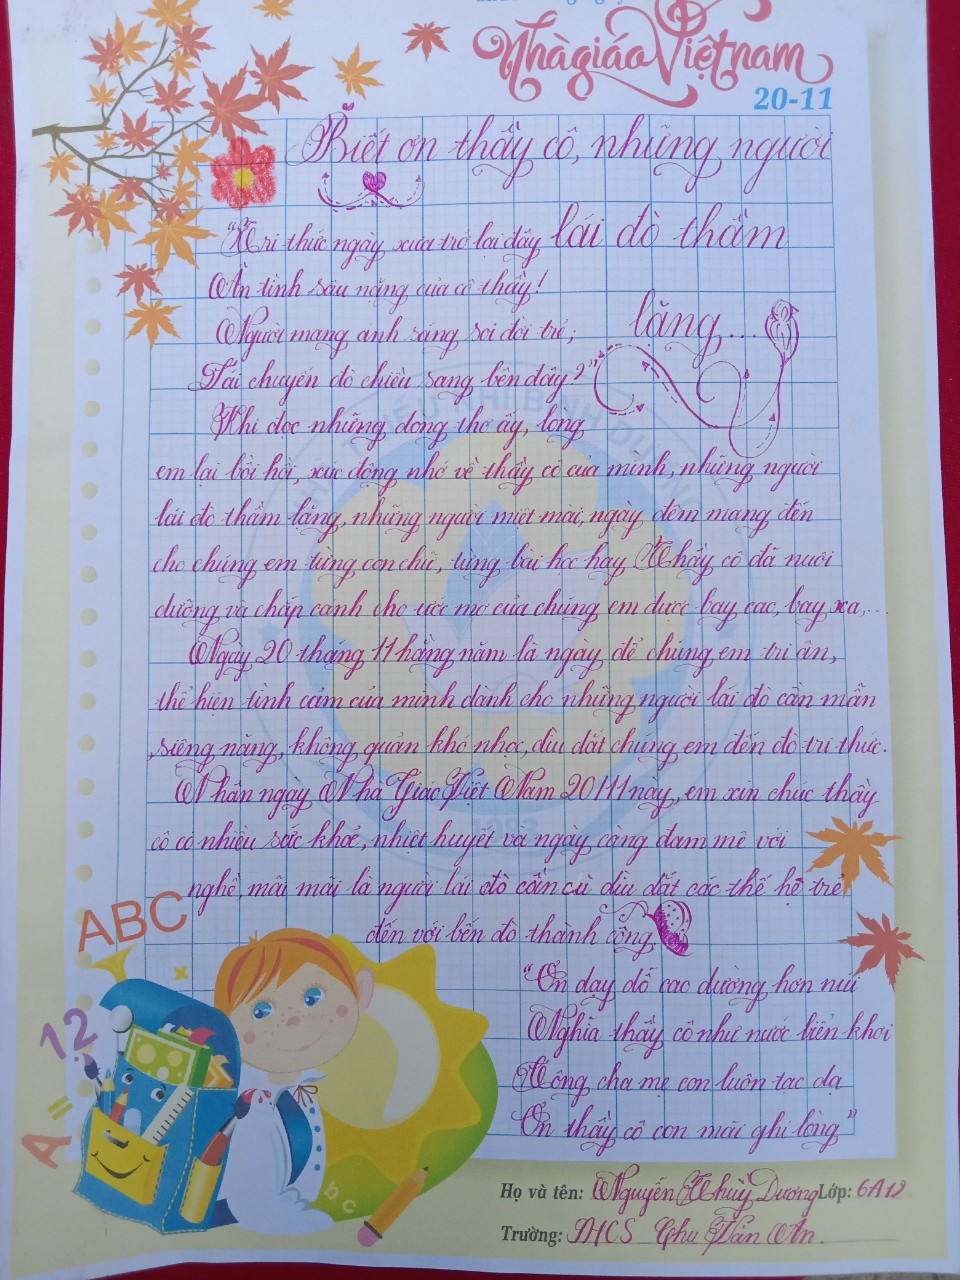 Nhà giáo Việt nam
20-11
Biết ơn thầy cô, những người
lái đò thầm
lặng...
"Tri thức ngày xưa trở lại đây
Ân tình sâu nặng của cô thầy!
Người mang ánh sáng soi đời trẻ;
Lái chuyến đò chiều sang bến đây?"
Khi đọc những dòng thơ ấy, lòng
em lại bồi hồi, xúc động nhớ về thầy cô của mình, những người
lái đò thầm lặng, những người miệt mài, ngày đêm mang đến
cho chúng em từng con chữ, từng bài học hay. Thầy cô đã nuôi
dưỡng và chắp cánh cho ước mơ của chúng em được bay cao, bay xa,...
Ngày 20 tháng 11 hằng năm là ngày để chúng em tri ân,
thể hiện tình cảm của mình dành cho những người lái đò cần mẫn
,siêng năng, không quản khó nhọc, dìu dắt chúng em đến đò tri thức.
Nhân ngày Nhà Giáo Việt Nam 20/11 này, em xin chúc thầy
cô có nhiều sức khoẻ, nhiệt huyết và ngày càng đam mê với
nghề, mãi mãi là người lái đò cần cù dìu dắt các thế hệ trẻ
đến với bến đò thành công.
"Ơn dạy dỗ cao dường hơn núi
Nghĩa thầy cô như nước biển khơi
Công cha mẹ con luôn tạc dạ
Ơn thầy cô con mãi ghi lòng"
ABC
12
A =
b c
Họ và tên: Nguyễn Thuỳ Dương Lớp: 6A12
Trường: THCS Chu Văn An